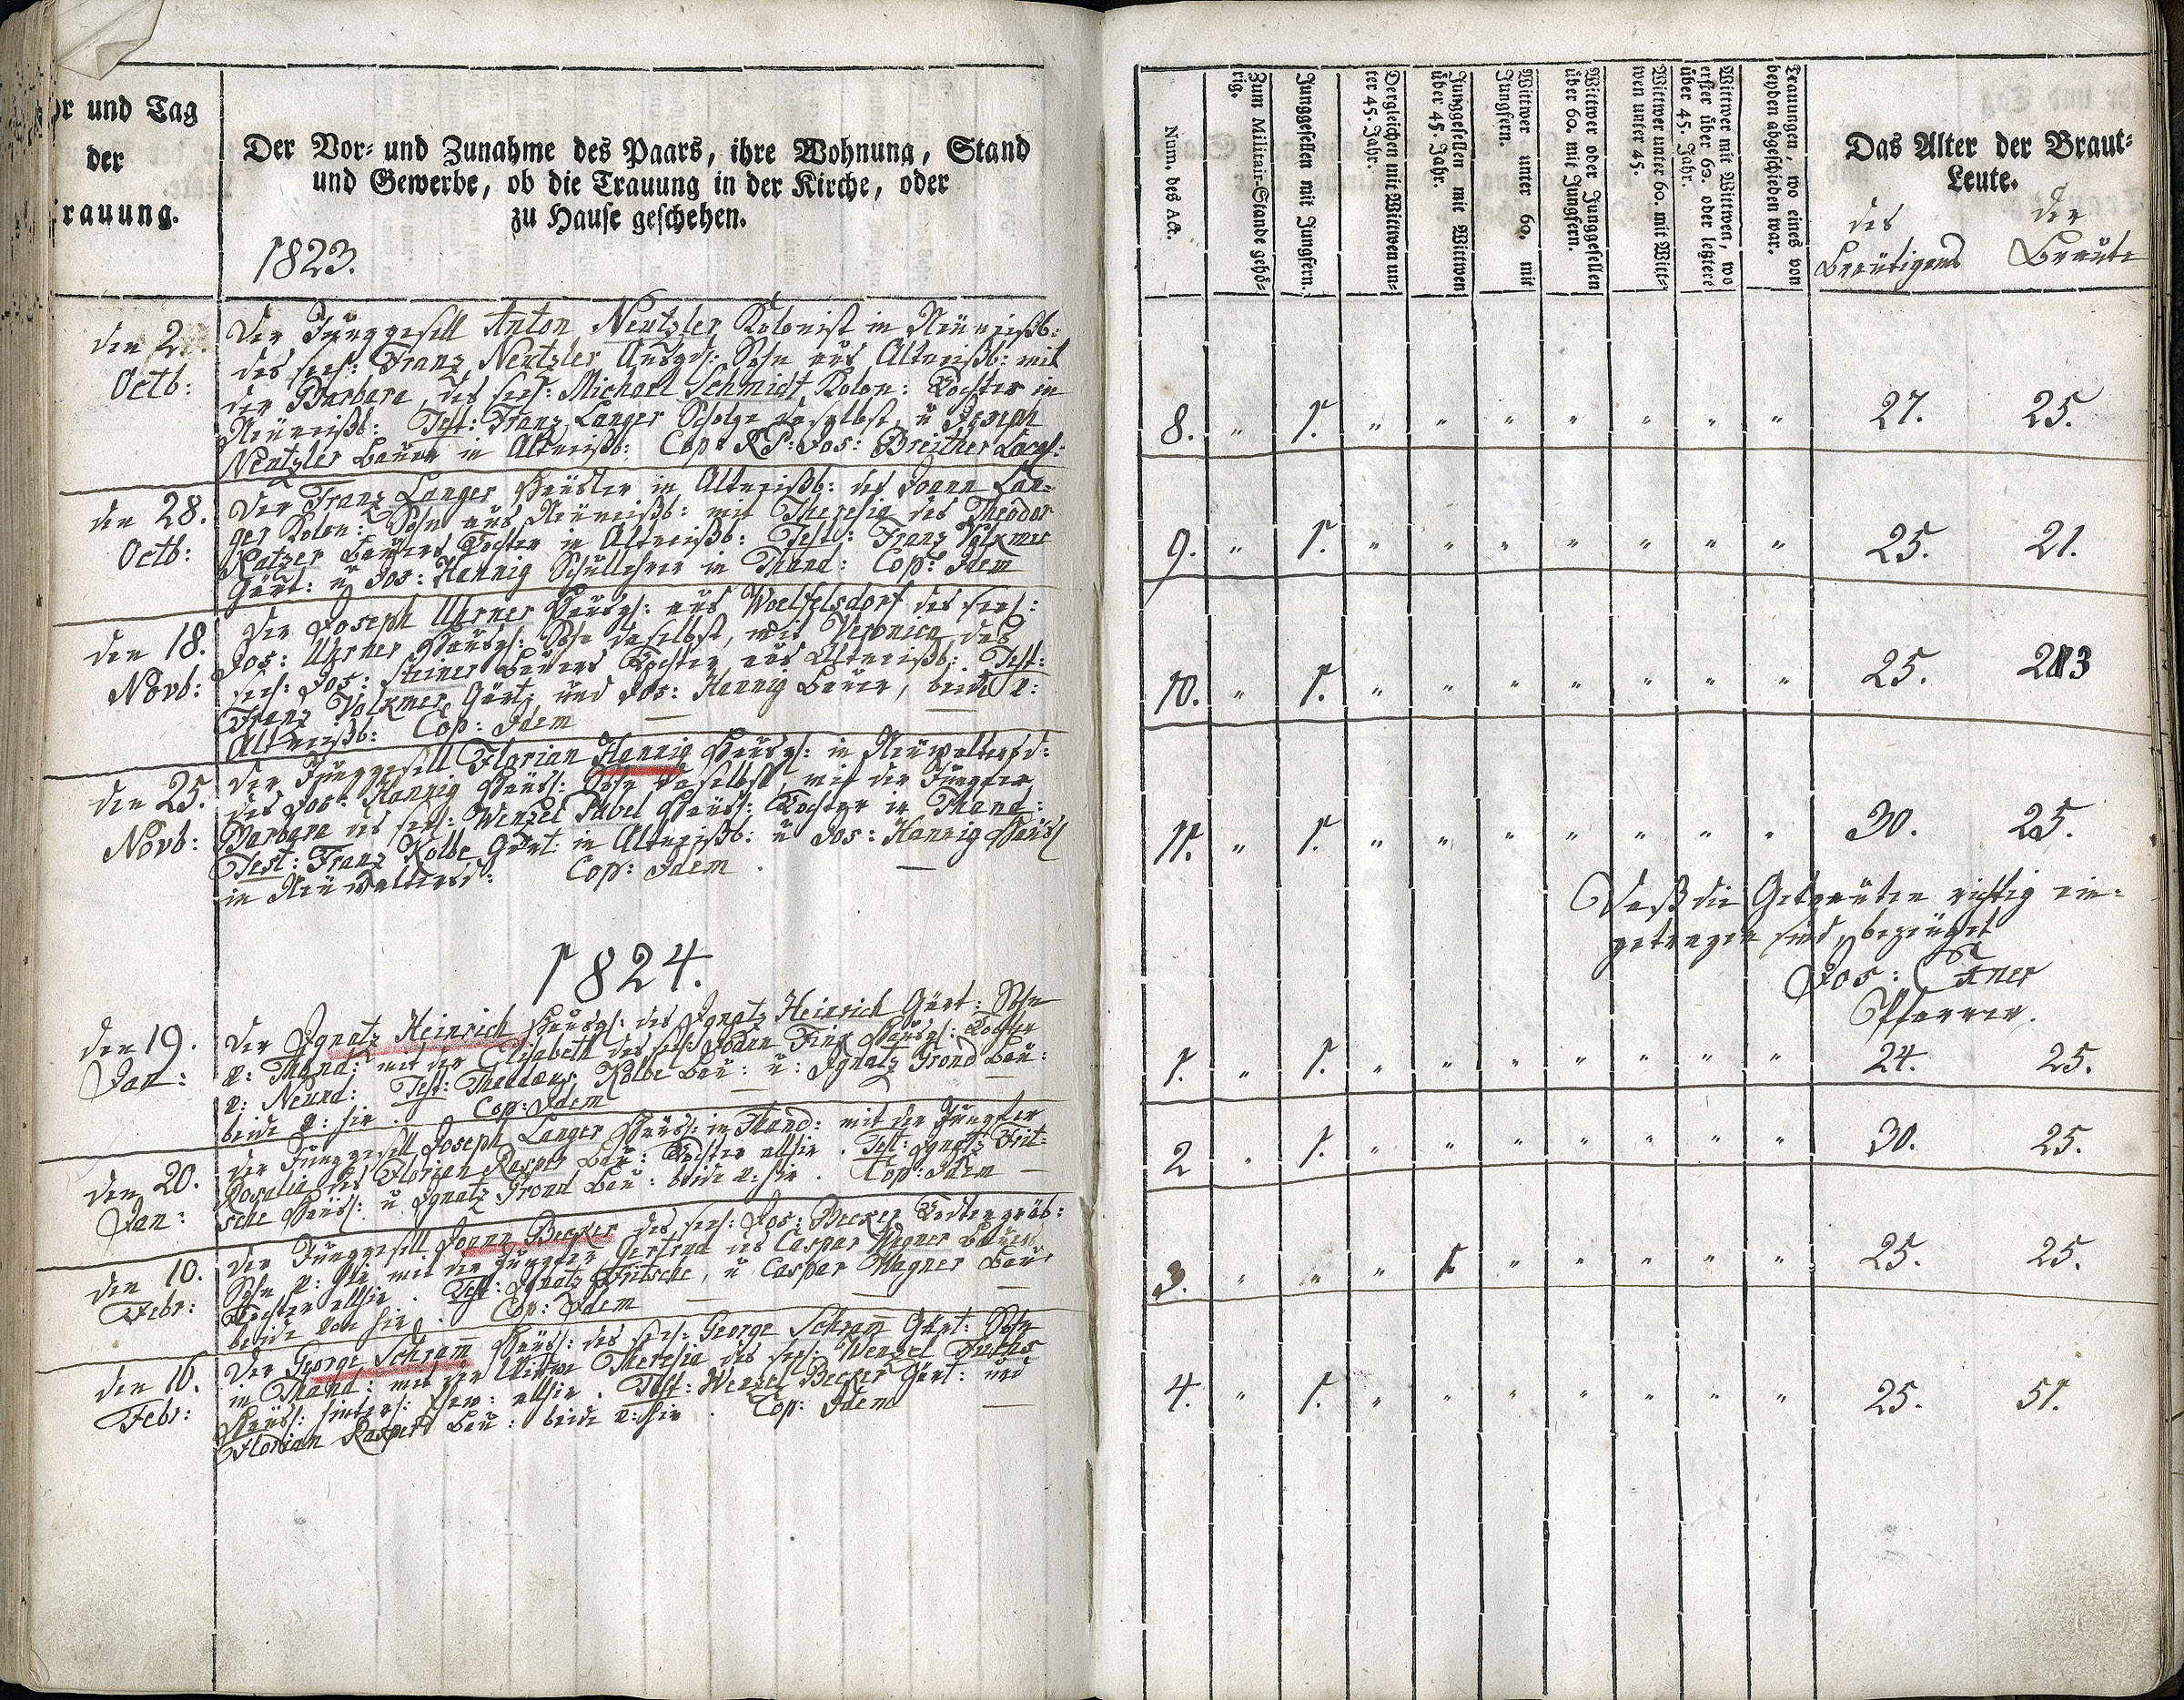 or und Tag
der
rauung.
Der Vor- und Zunahme des Paars, ihre Wohnung, Stand
und Gewerbe, ob die Trauung in der Kirche, oder
zu Hause geschehen.
1823.
den 2
Octb:
Der Junggesell Anton Neutzler Kolonist in Neuweißb:
des seel: Franz Neutzler Sohn aus Altweißb: mit
der Barbara, des seel: Michael Schmidt Kolon: Tochter in
Neuweißb: Test: Franz Langer Scholze daselbst, u Joseph
Neutzler Bauer in Altweißb: Cop: Jos: Breither
den 28.
Octb:
Der Franz Langer Häusler in Altweißb: des Joann Lan-
ger Kolon: Sohn aus Neuweißb: mit Theresia des Theodor
Katzer Bauers Tochter in Altweißb: Test: Franz Volkmer
Gärt: u Jos: Hannig Schullehrer in Thand: Cop: Idem
den 18.
Novb:
Der Joseph Uhrner aus Woelfelsdorf des seel:
Jos: Uhrner Sohn daselbst, mit Veronica des
seel: Jos: Steiner Bauers Tochter aus Altweißb: Test:
Franz Volkmer Gärt: und Jos: Hannig Bauer, beide v:
Altweißb: Cop: Idem
den 25.
Novb:
Der Junggesell Florian Hannig in Neuwaltersd:
des Jos: Hannig Häusl: Sohn daselbst, mit der Jungfer
Barbara des seel: Wenzel Pavel Häusl: Tochter in Thand:
Test: Franz Kolbe Gärt: in Altweißb: u Jos: Hannig Häusl
in Neuwaltersd: Cop: Idem
1824.
den 19.
Jan:
Der Ignatz Heinrich des Ignatz Heinrich Gärt: Sohn
v: Thand: mit der Elisabeth des seel: Joann Tochter
v: Neund: Test: Thaddaeus Kolbe Bau: u: Ignatz Grond Bau:
beide v: hier. Cop: Idem
den 20.
Jan:
Der Junggesell Joseph Langer Häusl: in Thand: mit der Jungfer
Rosalia des Florian Rasper Bau: Tochter allhier. Test: Ignatz Frit-
sche Häusl: u Ignatz Grond Bau: beide v: hier. Cop: Idem
den 10.
Febr:
Der Junggesell Joann Becker des seel: Jos: Becker Todtengräb:
Sohn v: hie mit der Jungfer Gertrud des Caspar Wagner Bauers
Tochter allhier. Test: Ignatz Fritsche, u Caspar Wagner Bau:
beide von hier. Cop: Idem
den 16.
Febr:
Der George Schram̅ Häusl: des seel: George Schram̅ Gärt: Sohn
in Thand: mit der Wittwe Theresia des seel: Wenzel
Häusl: hinterl: Ehew: allhier. Test: Wenzel Becker Gärt: und
Florian Raspert Bau: beide v: hier. Cop: Idem
Num. des Act.
Zum Militair-Stande gehö-
rig.
Junggesellen mit Jungfern.
Dergleichen mit Wittwen un-
ter 45. Jahr.
Junggesellen mit Wittwen
über 45. Jahr.
Wittwer unter 60. mit
Jungfern.
Wittwer oder Junggesellen
über 60. mit Jungfern.
Wittwer unter 60. mit Witt-
wen unter 45.
Wittwer mit Wittwen, wo
erster über 60. oder letztere
über 45. Jahr.
Trauungen, wo eines von
beyden abgeschieden war.
Das Alter der Braut-
Leute.
des
Bräutigams
der
Bräute
8. " 1. " " " " " " " 27. 25.
9. " 1. " " " " " " " 25. 21.
10. " 1. " " " " " " " 25. 23
11. " 1. " " " " " " " 30. 25.
Daß die Getrauten richtig ein-
getragen sind, bezeuget
Jos:
Pfarrer.
1. " 1. " " " " " " " 24. 25.
2 " 1. " " " " " " " 30. 25.
3. " " " 1. " " " " " 25. 25.
4. " 1. " " " " " " " 25. 51.